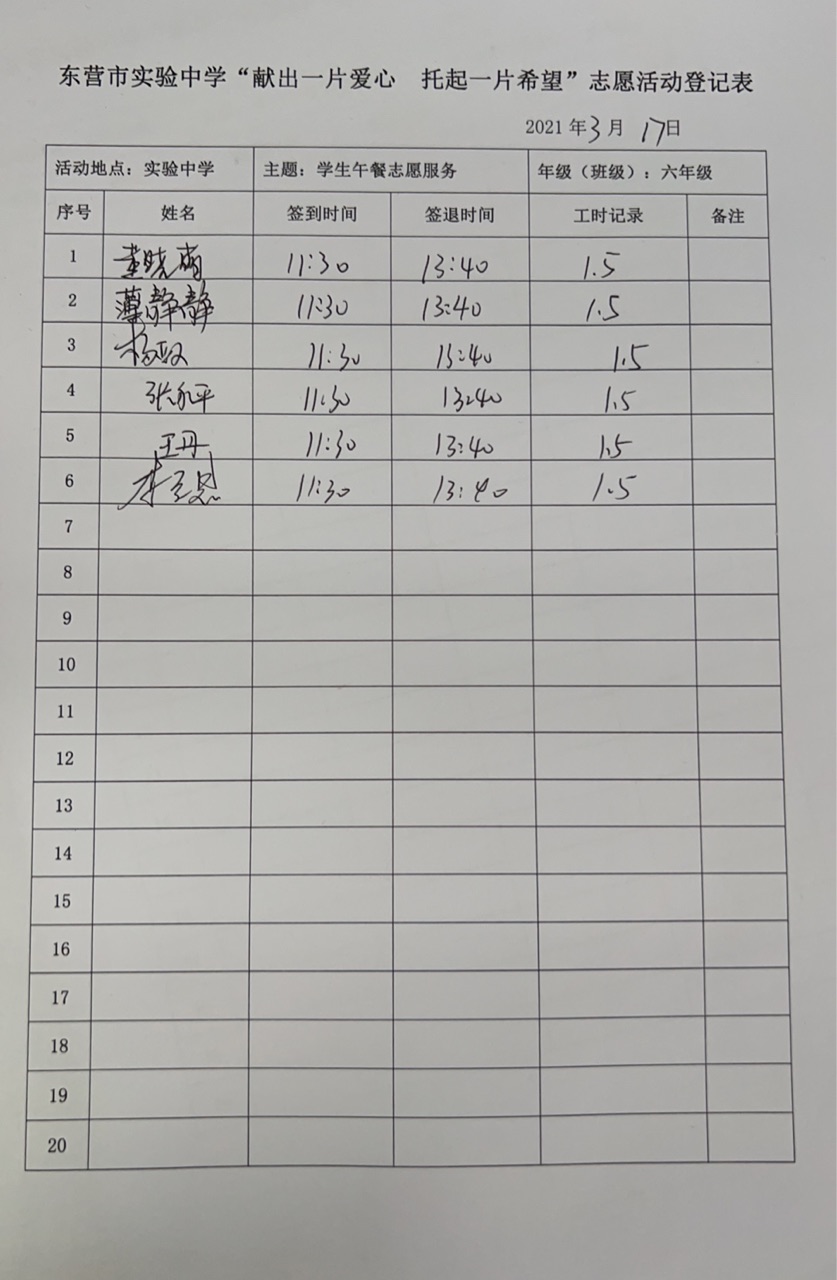 东营市实验中学“献出一片爱心 托起一片希望”志愿活动登记表
2021年3月 17日
活动地点：实验中学 主题：学生午餐志愿服务 年级（班级）：六年级
序号 姓名 签到时间 签退时间 工时记录 备注
1 董晓萌 11:30 13:40 1.5
2 薄静静 11:30 13:40 1.5
3 杨 11:30 13:40 1.5
4 张永平 11:30 13:40 1.5
5 王丹 11:30 13:40 1.5
6 李 11:30 13:40 1.5
7
8
9
10
11
12
13
14
15
16
17
18
19
20